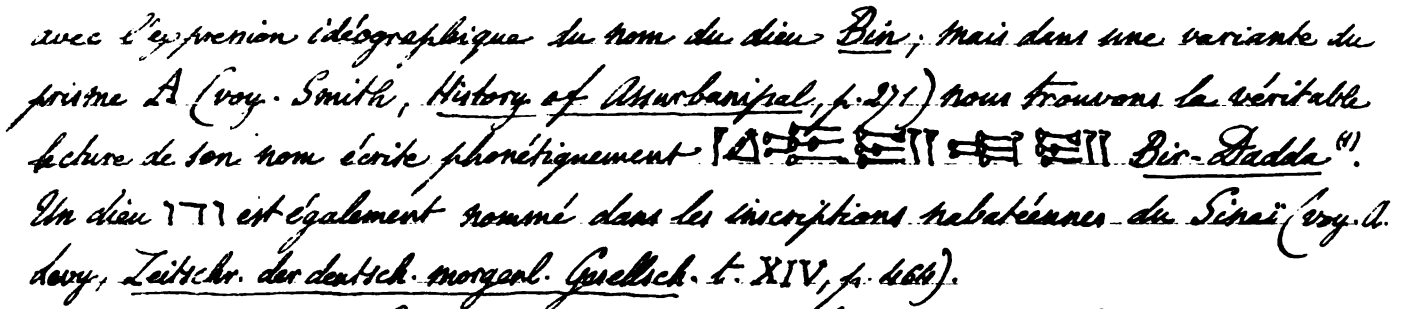 avec l'expression idéographique du nom du dieu Bin; mais dans une variante du
prisme A (voy. Smith, History of Assurbanipal, p. 271) nous trouvons la véritable
lecture de son nom écrite phonétiquement Bir-Dadda (1).
Un dieu est également nommé dans les inscriptions nabatéennes du Sinaï (voy. A.
Levy, Zeitschr. der deutsch. morgenl. Gesellsch. t. XIV, p. 464).